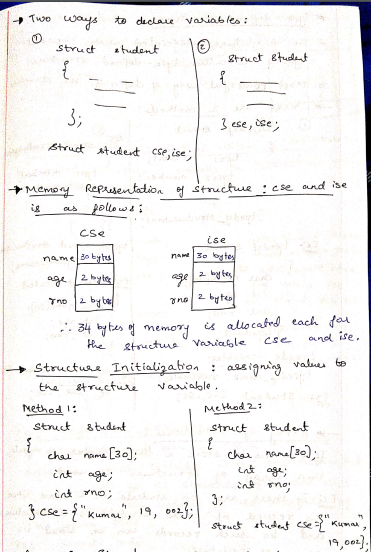 → Two ways to declare variables:
①
struct student
{
};
struct student cse,ise;
②
struct student
{
} cse, ise;
→ Memory Representation of structure : cse and ise
is as follows:
cse
name 30 bytes
age 2 bytes
rno 2 bytes
ise
name 30 bytes
age 2 bytes
rno 2 bytes
∴ 34 bytes of memory is allocated each for
the structure variable cse and ise.
→ Structure Initialization : assigning values to
the structure variable.
Method 1:
struct student
{
char name[30];
int age;
int rno;
} cse = {"Kumar", 19, 002};
Method 2:
struct student
{
char name[30];
int age;
int rno;
};
struct student cse = {"Kumar",
19,002}.